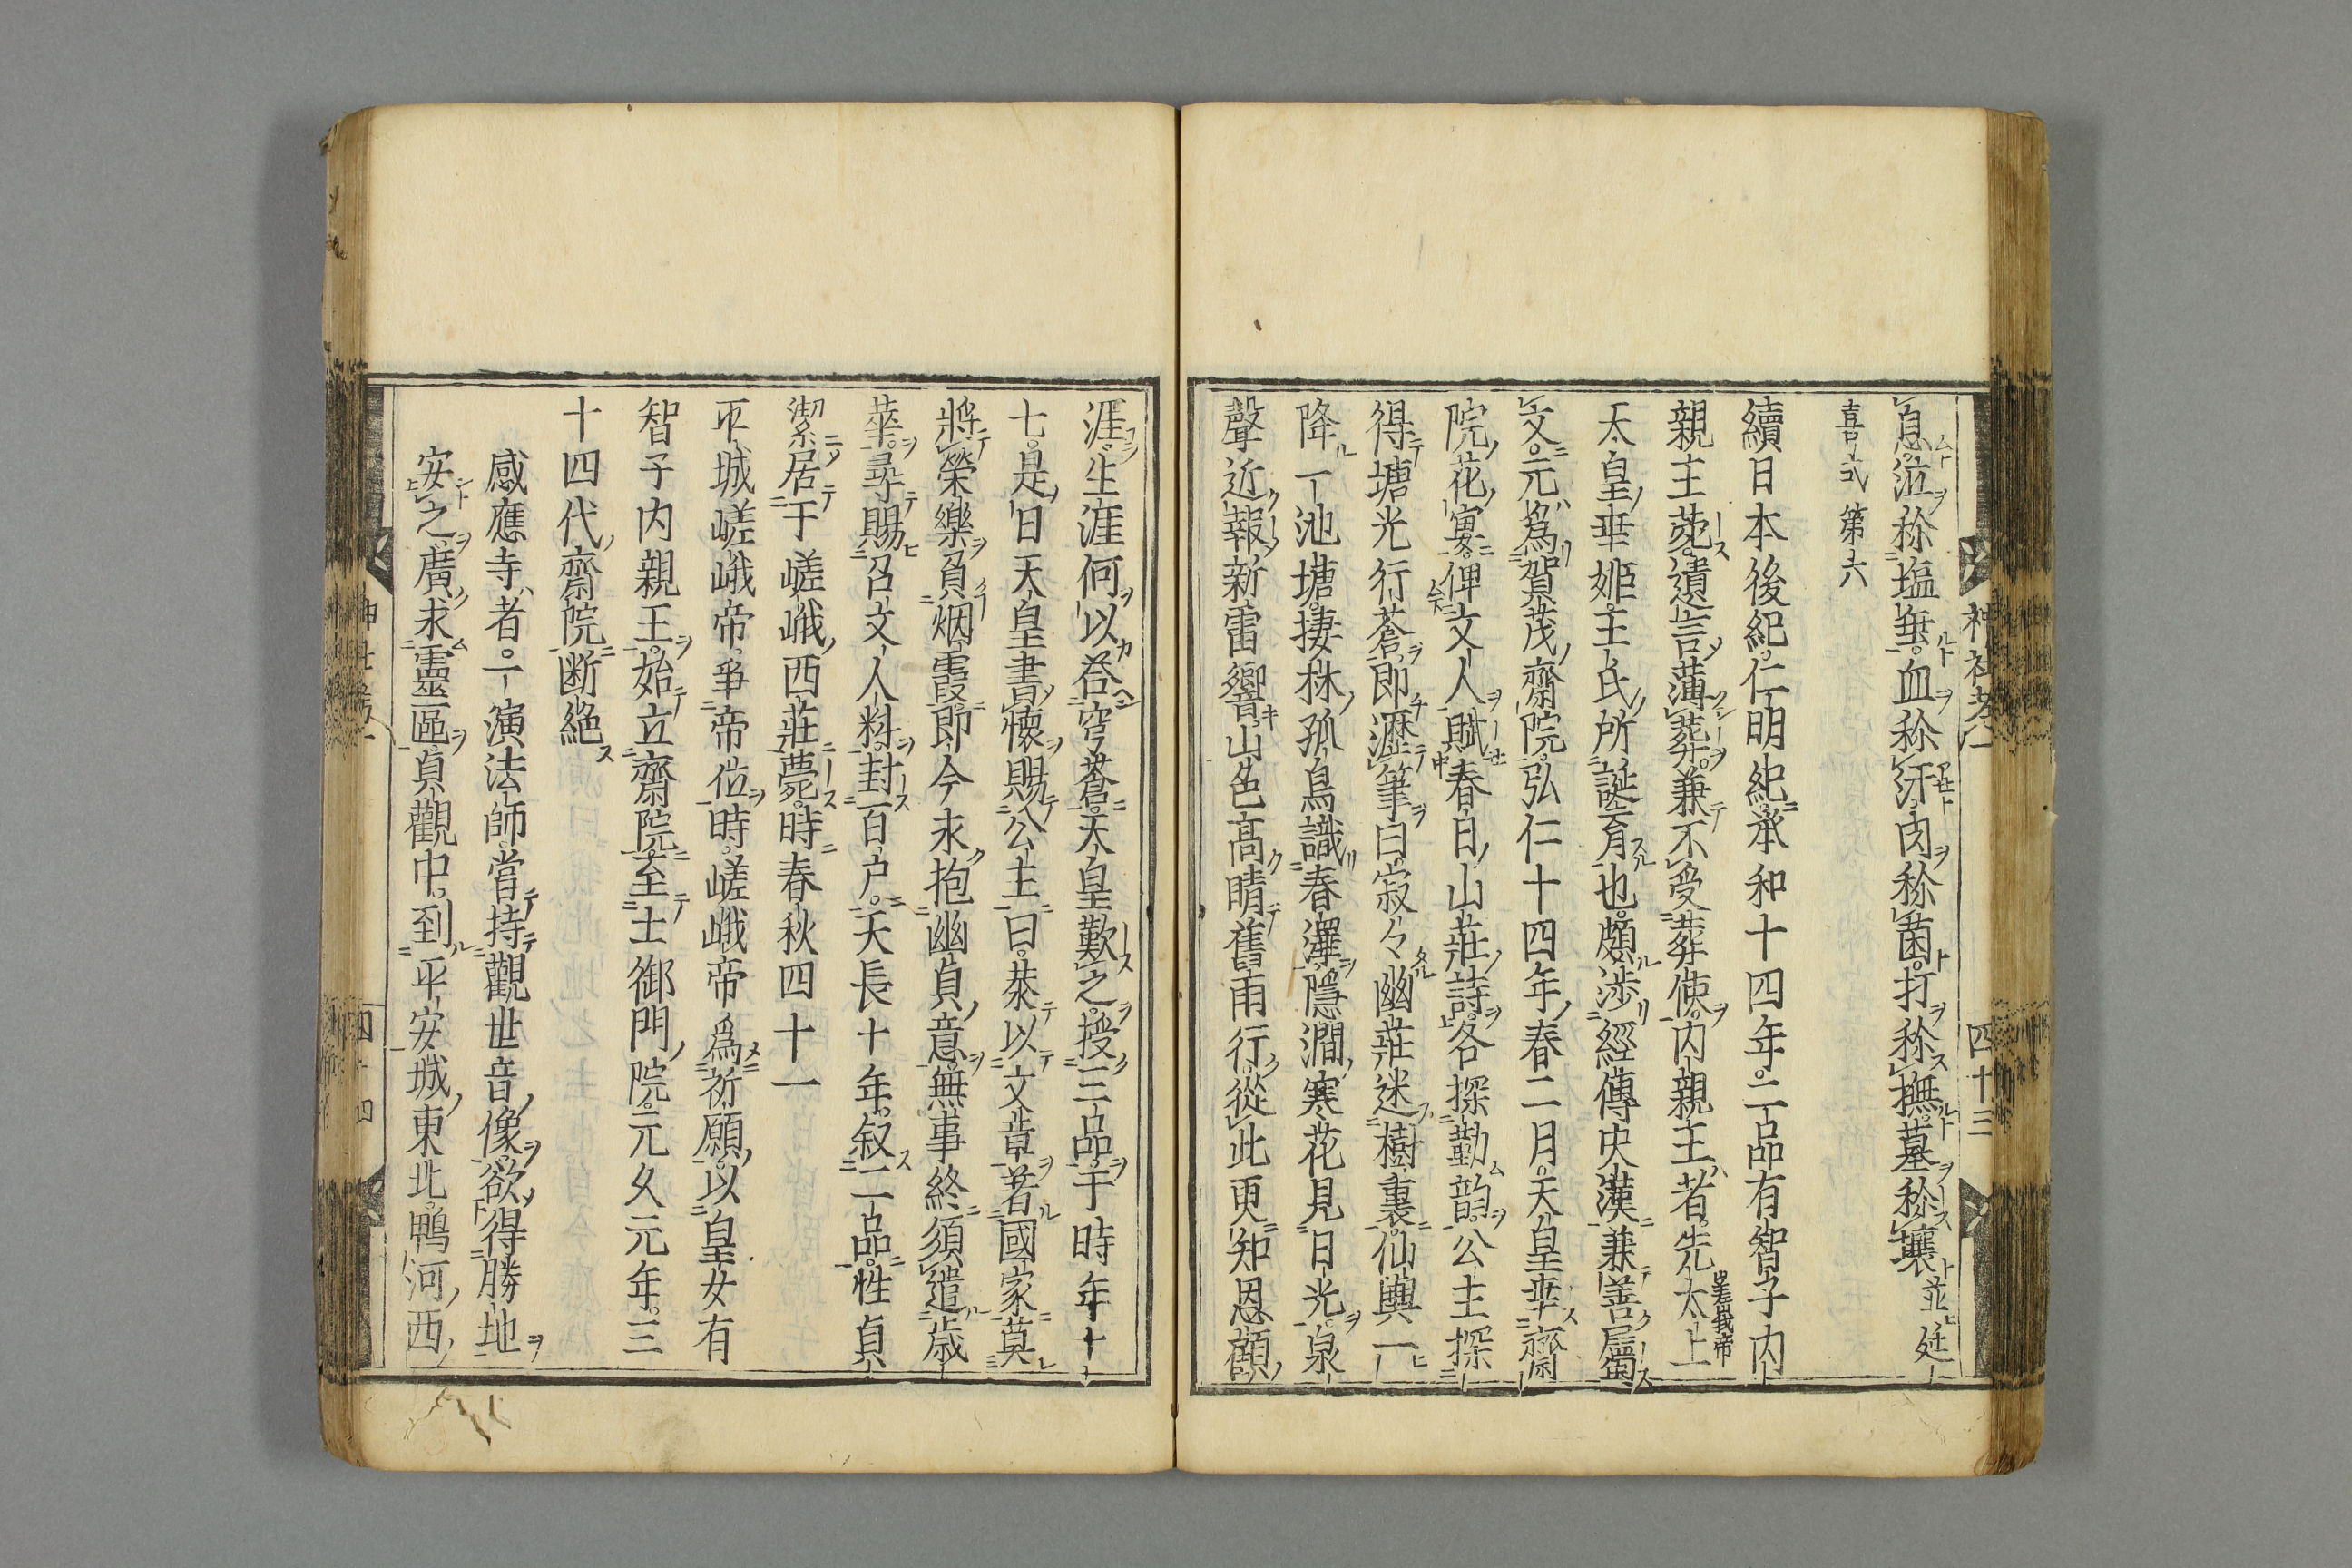 息泣称塩垂血称汗肉称菌打称撫墓称壤並延
喜式第六
續日本後紀仁明紀承和十四年二品有智子内
親王薨遺言薄葬兼不受葬使内親王者先太上
嵯峨帝
天皇幸姬王氏所誕育也頗渉經傳史漢兼善屬
文元爲賀茂齋院弘仁十四年春二月天皇幸齋
院花宴俾文人賦春日山莊詩各探勒韵公主探
得塘光行蒼即瀝筆曰寂々幽莊迷樹裏仙輿一
降一池塘捿林孤鳥識春澤隱澗寒花見日光泉
聲近報新雷響山色高晴舊雨行從此更知恩顧
涯生涯何以答穹蒼天皇歎之授三品于時年十
七是日天皇書懷賜公主曰忝以文章著國家莫
將榮樂負烟霞即今永抱幽貞意無事終須遣歳
華尋賜召文人料封百戸天長十年叙二品性貞
潔居于嵯峨西莊薨時春秋四十一
平城嵯峨帝爭帝位時嵯峨帝爲祈願以皇女有
智子内親王始立齋院至土御門院元久元年三
十四代齋院断絶
感應寺者一演法師當持觀世音像欲得勝地
安之廣求靈區貞觀中到平安城東北鴨河西
神社考一
四十三
四十四